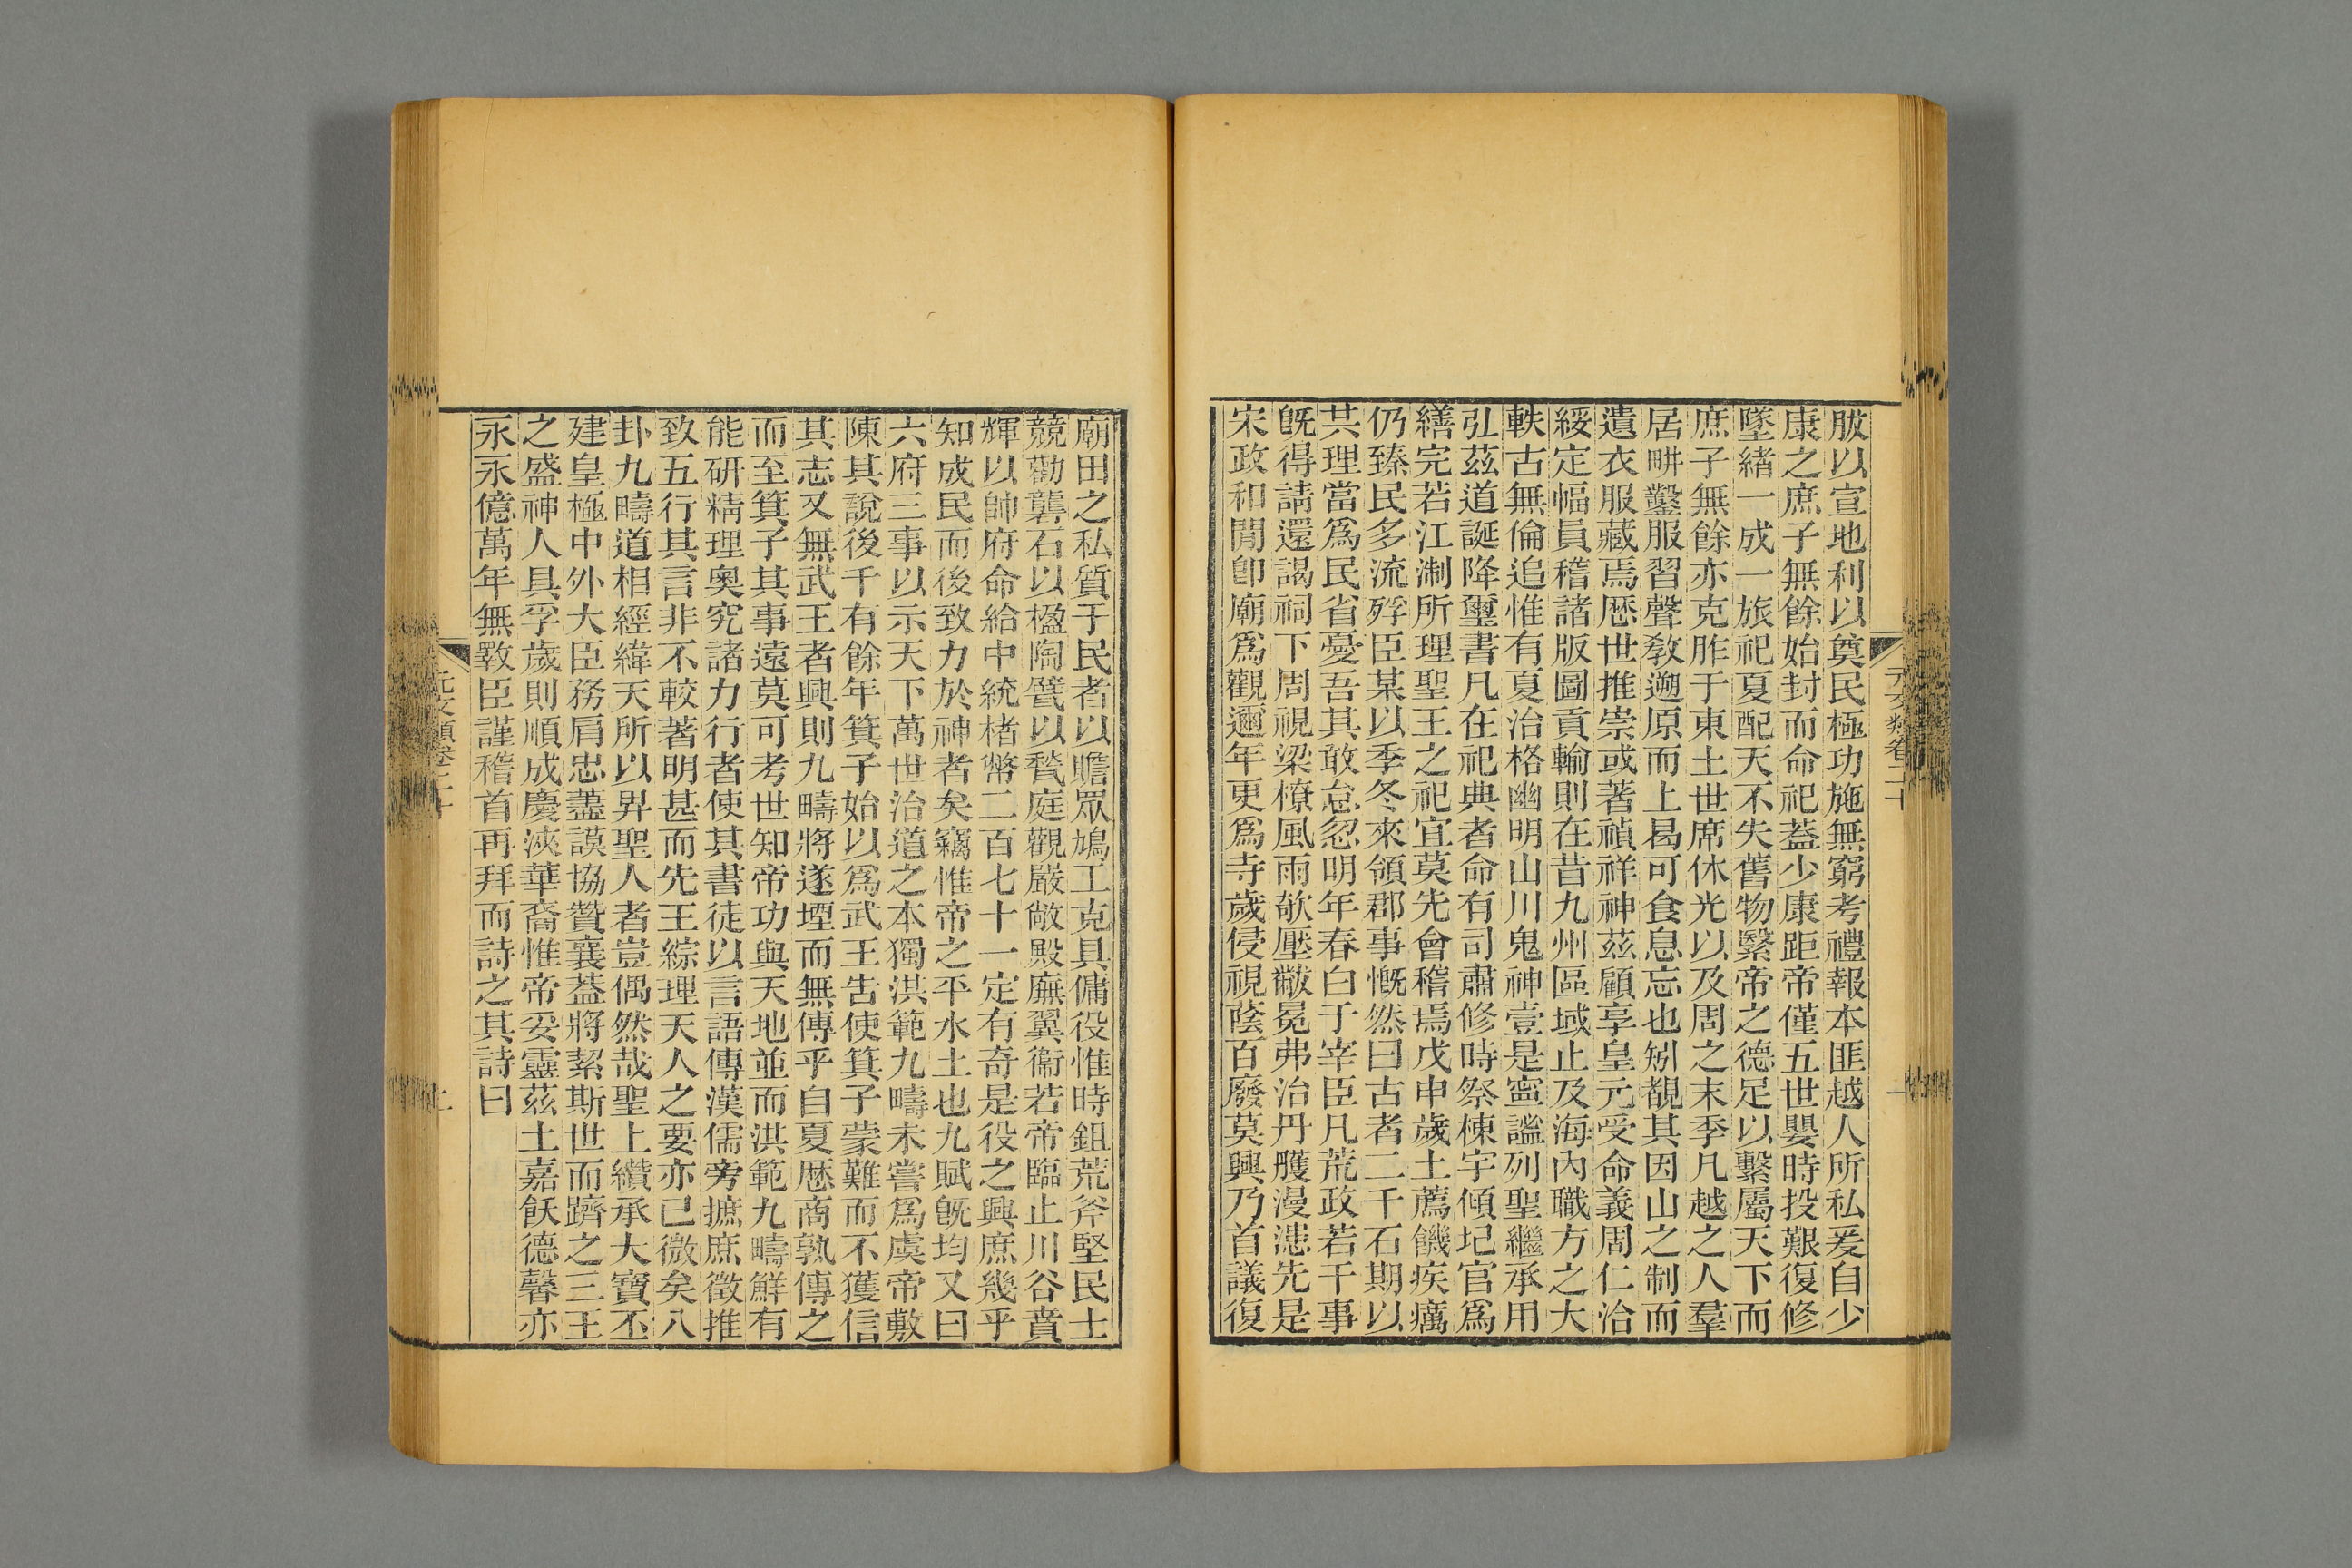 元文類卷二十
一
胈以宣地利以奠民極功施無窮考禮報本匪越人所私爰自少
康之庶子無餘始封而命祀葢少康距帝僅五世嬰時投艱復修
墜緒一成一旅祀夏配天不失舊物繄帝之德足以繫屬天下而
庶子無餘亦克胙于東土世席休光以及周之末季凡越之人羣
居畊鑿服習聲敎遡原而上曷可食息忘也矧覩其因山之制而
遺衣服藏焉歷世推崇或著禎祥神茲顧享皇元受命義周仁洽
綏定幅員稽諸版圖貢輸則在昔九州區域止及海內職方之大
軼古無倫追惟有夏治格幽明山川鬼神壹是寧謐列聖繼承用
弘茲道誕降璽書凡在祀典者命有司肅修時祭棟宇傾圮官爲
繕完若江淛所理聖王之祀宜莫先會稽焉戊申歲土薦饑疾癘
仍臻民多流殍臣某以季冬來領郡事慨然曰古者二千石期以
其理當爲民省憂吾其敢怠忽明年春白于宰臣凡荒政若干事
旣得請還謁祠下周視梁橑風雨欹壓黻冕弗治丹雘漫漶先是
宋政和閒卽廟爲觀邇年更爲寺歲侵視蔭百廢莫興乃首議復
廟田之私質于民者以贍眾鳩工克具傭役惟時鉏荒斧堅民士
競勸礱石以楹陶甓以甃庭觀嚴敞殿廡翼衞若帝臨止川谷賁
輝以帥府命給中統楮幣二百七十一定有奇是役之興庶幾乎
知成民而後致力於神者矣竊惟帝之平水土也九賦旣均又曰
六府三事以示天下萬世治道之本獨洪範九疇未嘗爲虞帝敷
陳其說後千有餘年箕子始以爲武王告使箕子蒙難而不獲信
其志又無武王者興則九疇將遂堙而無傳乎自夏歷商孰傳之
而至箕子其事遠莫可考世知帝功與天地並而洪範九疇鮮有
能硏精理奧究諸力行者使其書徒以言語傳漢儒旁摭庶徵推
致五行其言非不較著明甚而先王綜理天人之要亦已微矣八
卦九疇道相經緯天所以畀聖人者豈偶然哉聖上纘承大寶丕
建皇極中外大臣務肩忠藎謨協贊襄葢將絜斯世而躋之三王
之盛神人具孚歲則順成慶浹華裔惟帝妥靈茲土嘉飫德馨亦
永永億萬年無斁臣謹稽首再拜而詩之其詩曰
元文類卷二十